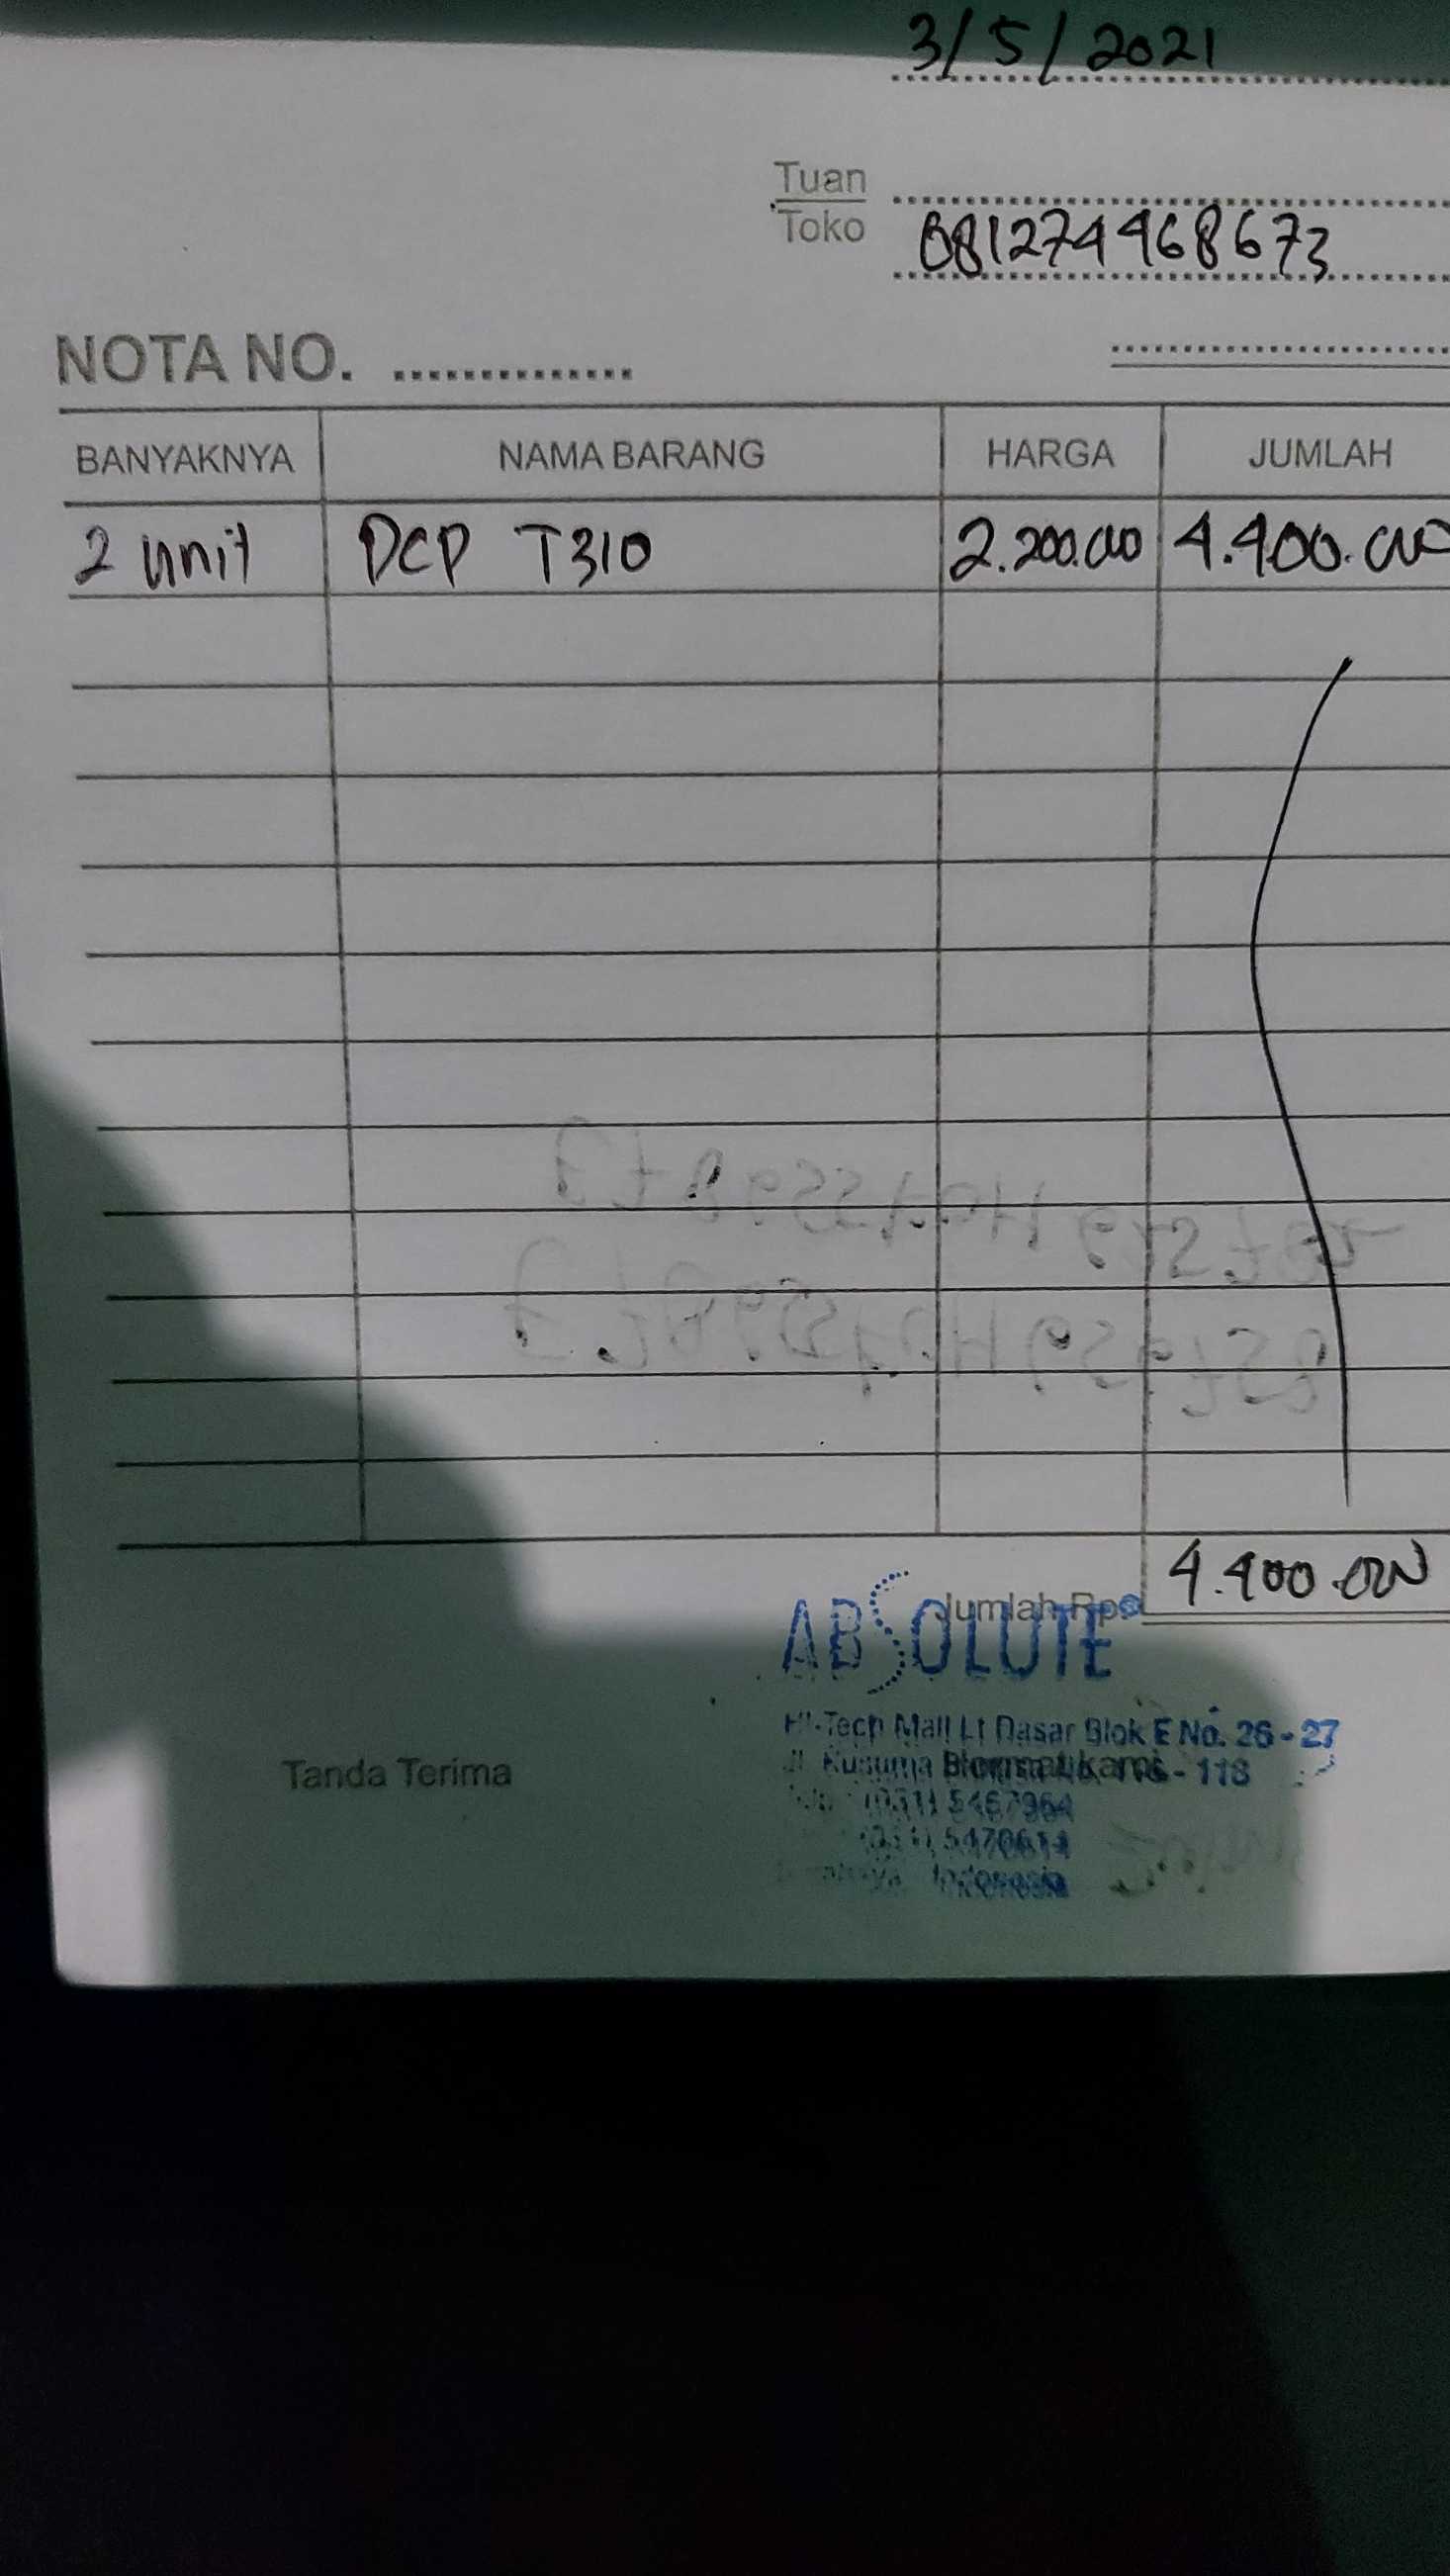 3/5/2021
Tuan
Toko 081274468673
NOTA NO. ..............
BANYAKNYA NAMA BARANG HARGA JUMLAH
2 unit DCP T310 2.200.000 4.400.000
Jumlah Rp. 4.400.000
ABSOLUTE
Hi-Tech Mall Lt Dasar Blok E No. 26 - 27
Jl. Kusuma 116 - 118
Tanda Terima
(031) 5467964
(031) 5470614
Indonesia